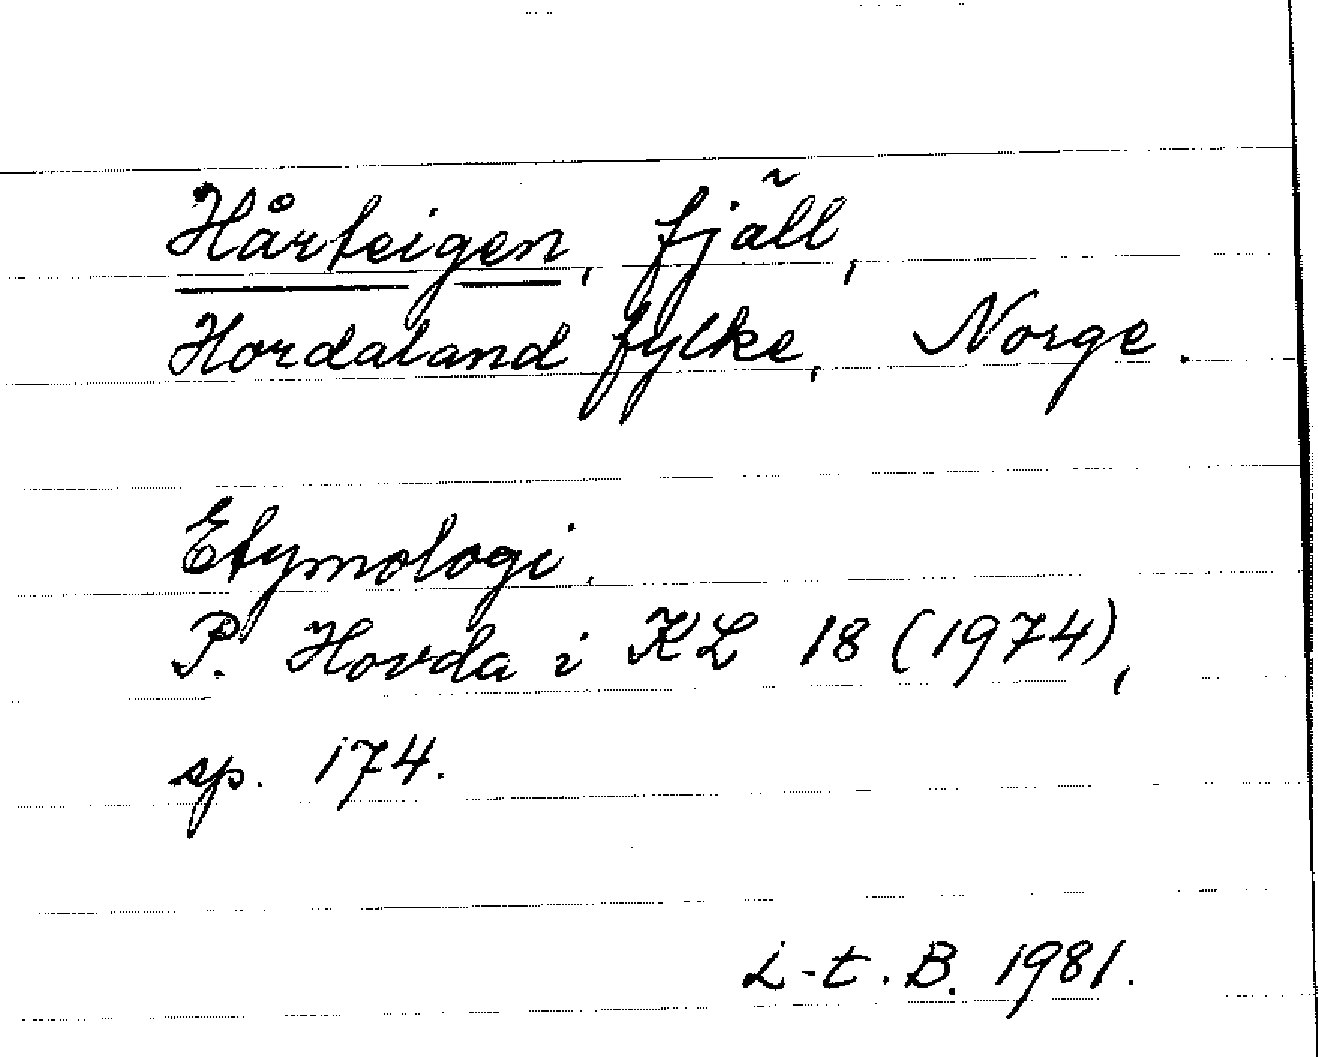 Hårteigen, fjäll,
Hordaland fylke, Norge.
Etymologi.
P. Hovda i KL 18 (1974),
sp. 174.
L-t. B. 1981.